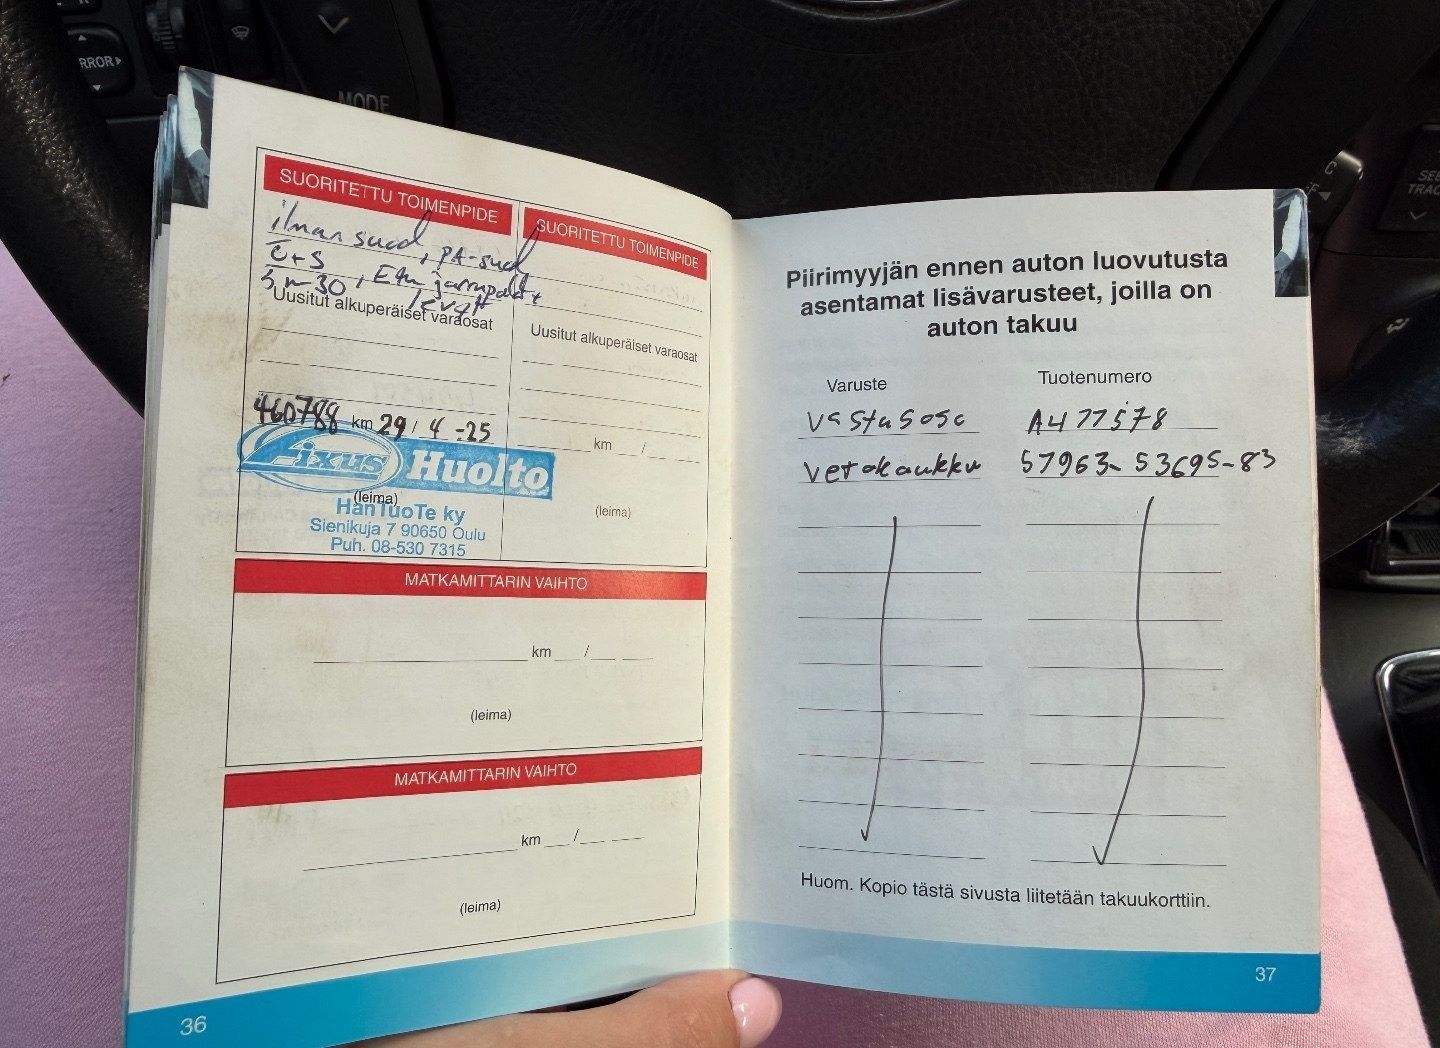 RROR
MODE
SUORITETTU TOIMENPIDE
ilman suod, PA-suod,
Ö+S
5w-30, Etu jarrupalat+
levyt
Uusitut alkuperäiset varaosat
460788 km 29/4-25
Lixus Huolto
(leima)
HanTuoTe ky
Sienikuja 7 90650 Oulu
Puh. 08-530 7315
SUORITETTU TOIMENPIDE
Uusitut alkuperäiset varaosat
km /
(leima)
MATKAMITTARIN VAIHTO
km /
(leima)
MATKAMITTARIN VAIHTO
km /
(leima)
36
Piirimyyjän ennen auton luovutusta
asentamat lisävarusteet, joilla on
auton takuu
Varuste Tuotenumero
Vastusosa A477578
Verokaukku 57963-53695-83
Huom. Kopio tästä sivusta liitetään takuukorttiin.
37